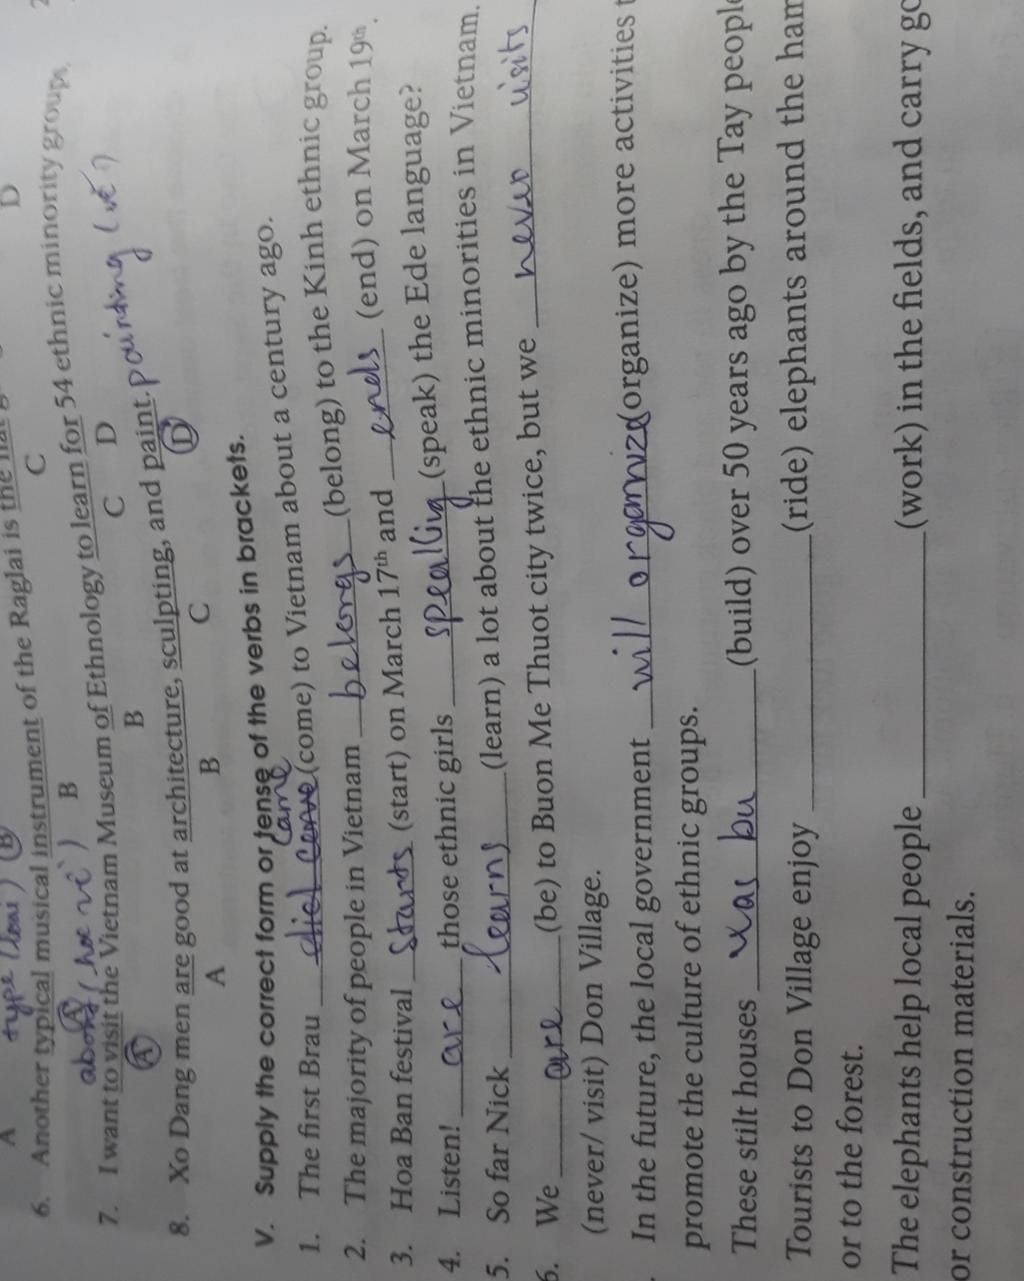 A D
type (loại) B
6. Another typical musical instrument of the Raglai is the
A B C
7. I want to visit the Vietnam Museum of Ethnology to learn for 54 ethnic minority groups.
A B C D
8. Xo Dang men are good at architecture, sculpting, and paint. painting (vẽ)
A B C D
V. Supply the correct form or tense of the verbs in brackets.
came
1. The first Brau did come (come) to Vietnam about a century ago.
2. The majority of people in Vietnam belongs (belong) to the Kinh ethnic group.
3. Hoa Ban festival starts (start) on March 17th and ends (end) on March 19th.
4. Listen! are those ethnic girls speaking (speak) the Ede language?
5. So far Nick learns (learn) a lot about the ethnic minorities in Vietnam.
6. We are (be) to Buon Me Thuot city twice, but we never visits
(never/ visit) Don Village.
In the future, the local government will organize (organize) more activities t
promote the culture of ethnic groups.
These stilt houses was bu (build) over 50 years ago by the Tay people
Tourists to Don Village enjoy (ride) elephants around the ham
or to the forest.
The elephants help local people (work) in the fields, and carry go
or construction materials.